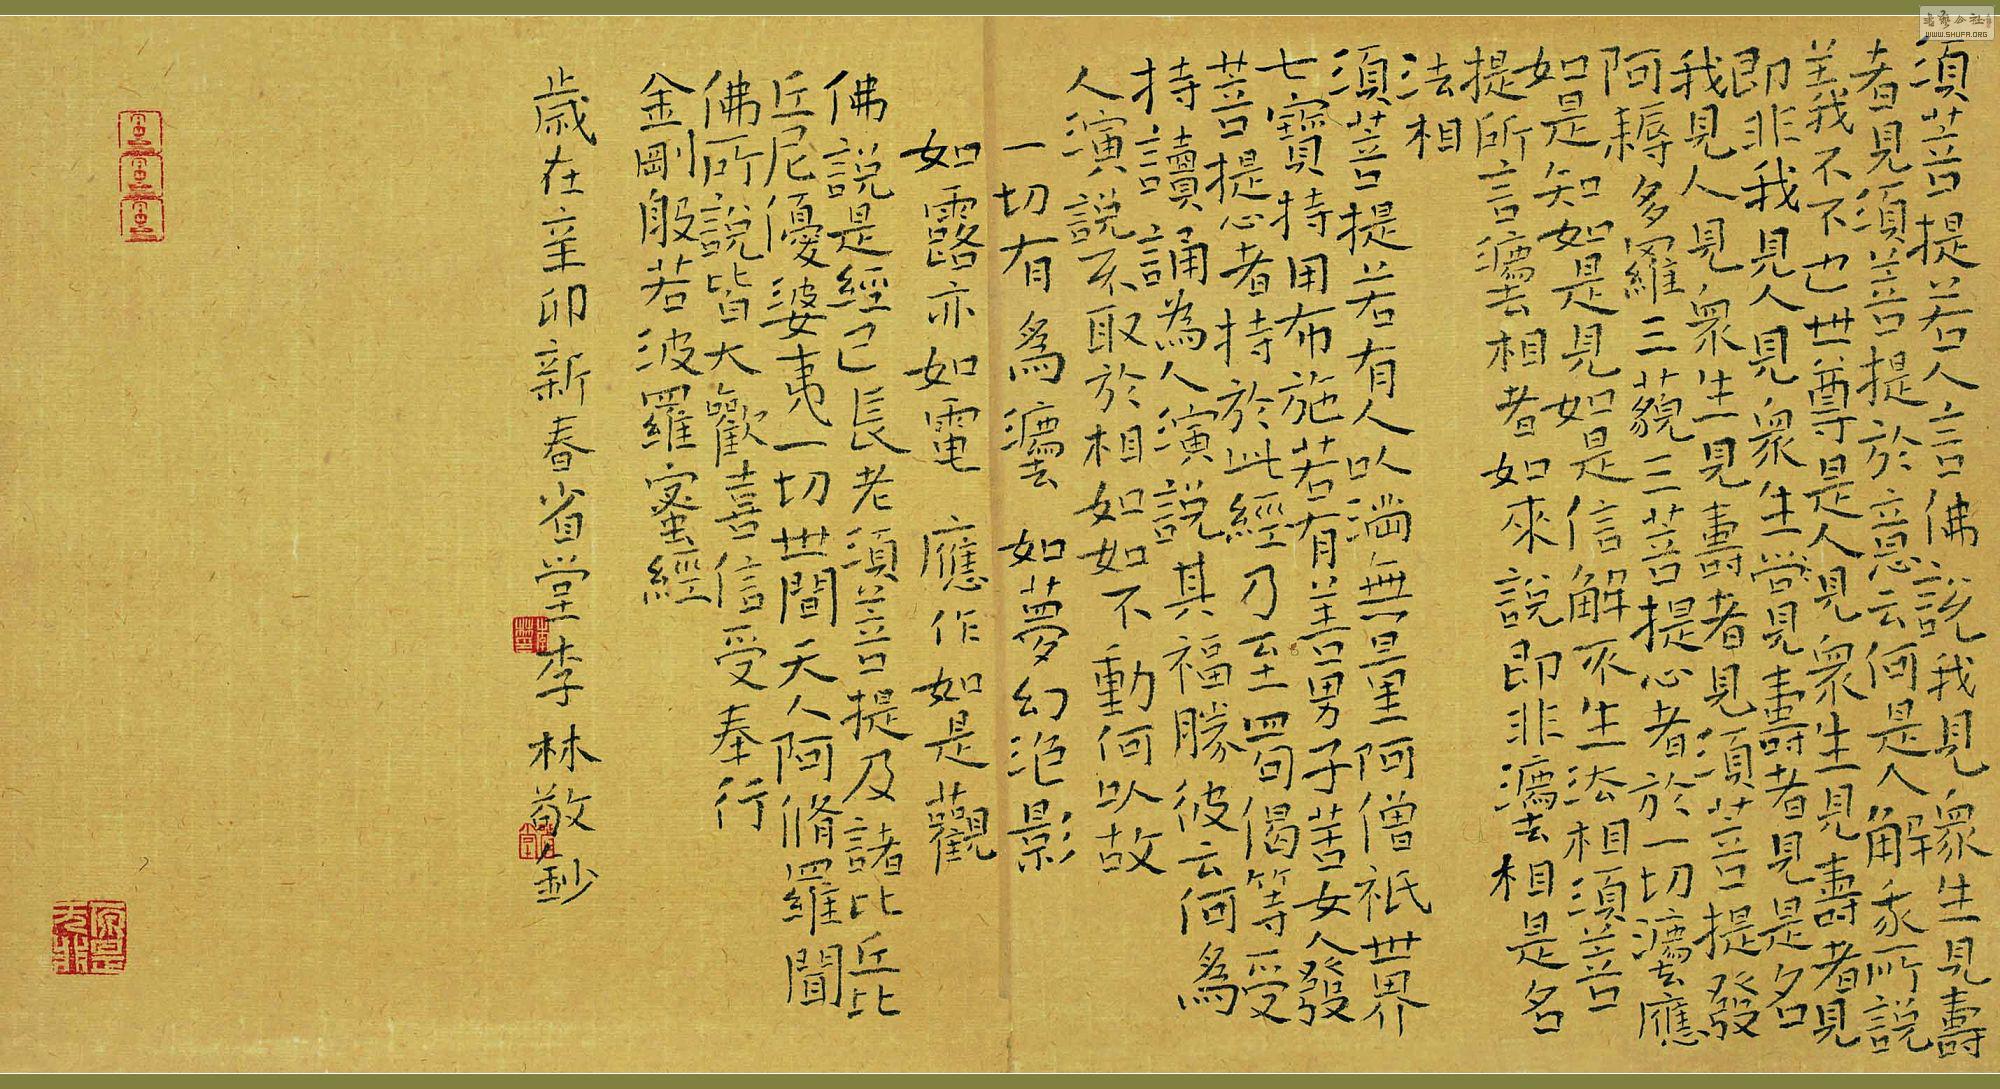 須菩提若人言佛說我見衆生見壽
者見須菩提於意云何是人解我所說
義不不也世尊是人見衆生見壽者見
即非我見人見衆生當見壽者見是名
我見人見衆生見壽者見須菩提發
阿耨多羅三藐三菩提心者於一切灋應
如是知如是見如是信解不生法相須菩
提所言灋相者如來說即非灋相是名
法相
須菩提若有人以滿無量阿僧祇世界
七寶持用布施若有善男子善女人發
菩提心者持於此經乃至四句偈等受
持讀誦為人演說其福勝彼云何為
人演說不取於相如如不動何以故
一切有為灋 如夢幻泡影
如露亦如電 應作如是觀
佛說是經已長老須菩提及諸比丘比
丘尼優婆夷一切世間天人阿脩羅聞
佛所說皆大歡喜信受奉行
金剛般若波羅蜜經
歲在辛卯新春省堂李林敬鈔
WWW.SHUFA.ORG